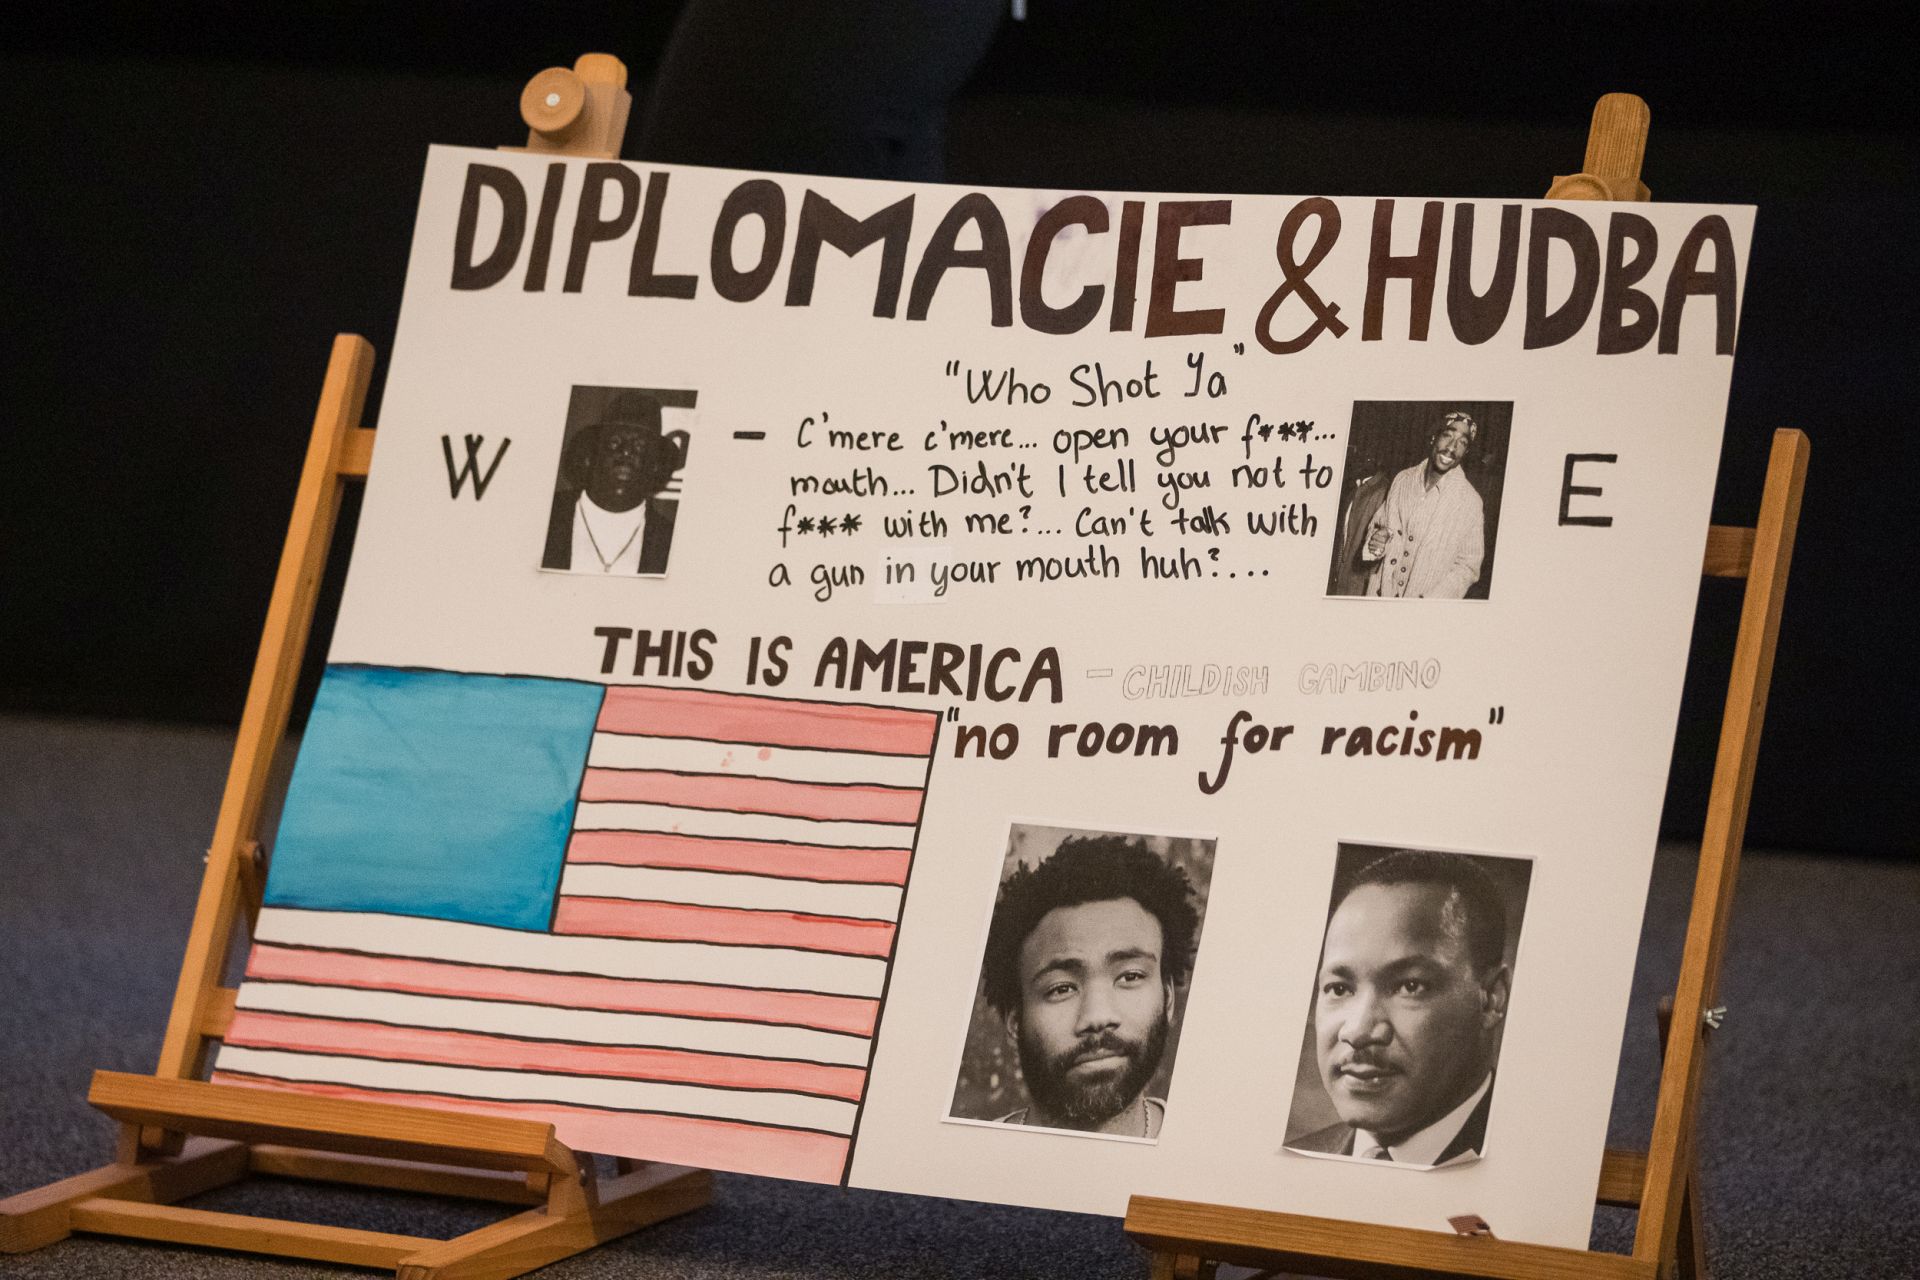 DIPLOMACIE & HUDBA
"Who Shot Ya"
W
- C'mere c'mere... open your f***...
mouth... Didn't I tell you not to
f*** with me?... Can't talk with
a gun in your mouth huh?....
E
THIS IS AMERICA - CHILDISH GAMBINO
"no room for racism"